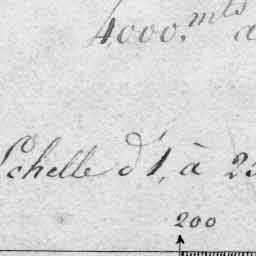 4000.mts
Echelle d'1. à
200